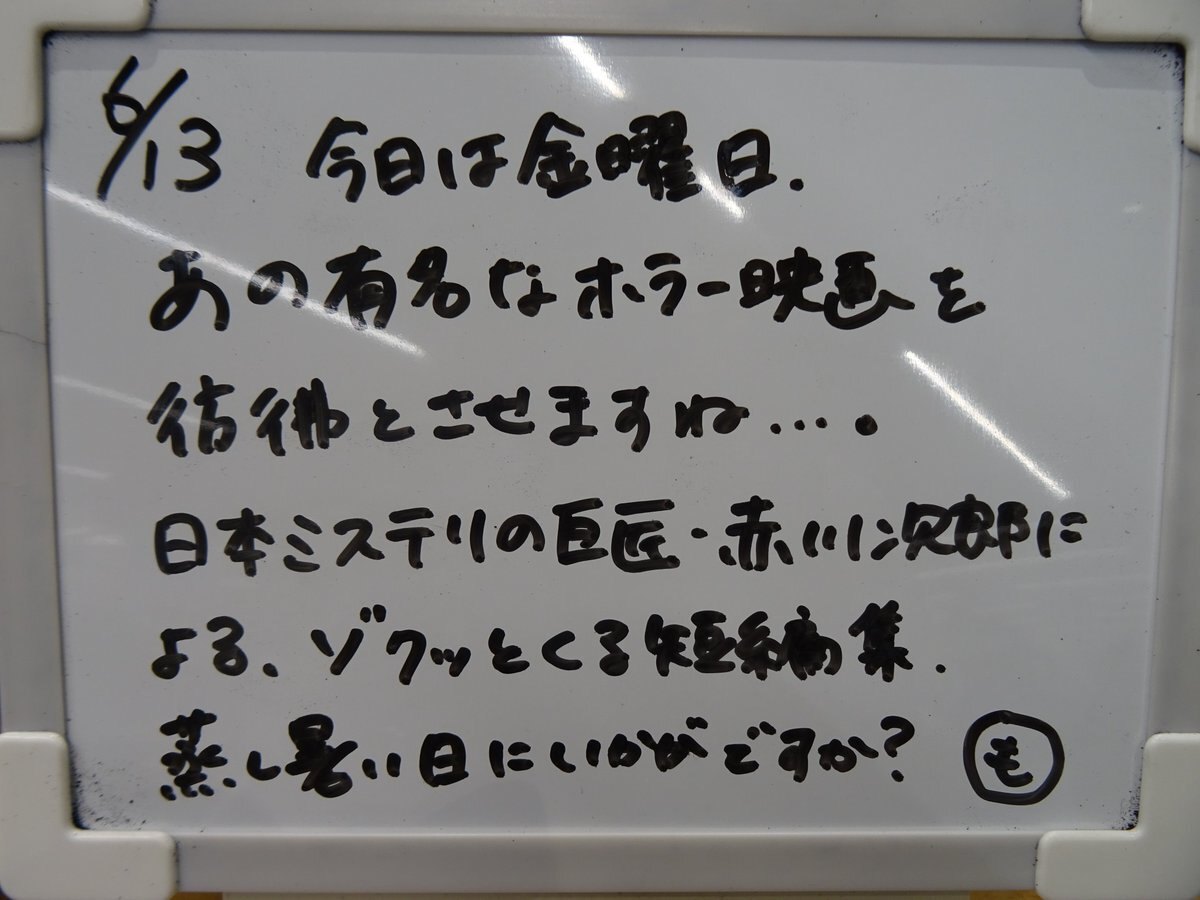 6/13 今日は金曜日.
あの有名なホラー映画を
彷彿とさせますね….
日本ミステリの巨匠・赤川次郎に
よる、ゾクッとくる短編集.
蒸し暑い日にいかがですか? も